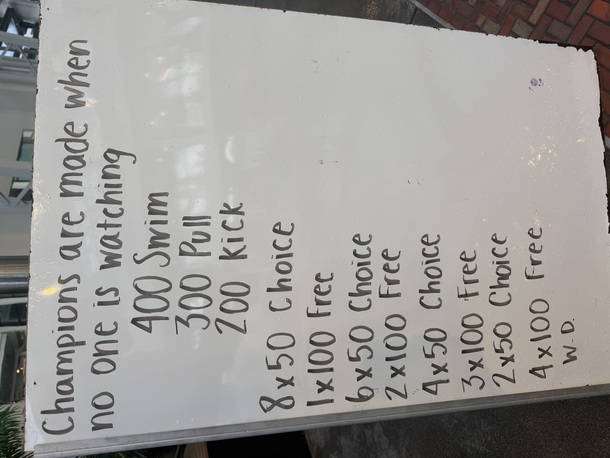 Champions are made when
no one is watching
400 Swim
300 Pull
200 Kick
8x50 Choice
1x100 Free
6x50 Choice
2x100 Free
4x50 Choice
3x100 Free
2x50 Choice
4x100 Free
W.D.